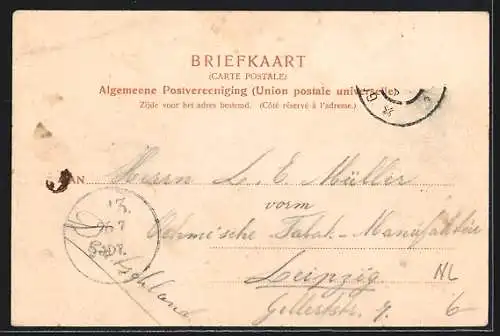 BRIEFKAART
(CARTE POSTALE)
Algemeene Postvereeniging (Union postale universelle)
Zijde voor het adres bestemd. (Côté réservé à l'adresse.)
AAN Herrn L. E. Müller
vorm
Tabak-Manufaktur
Leipzig
Gellertstr. 7.
NL
6
Deutschland